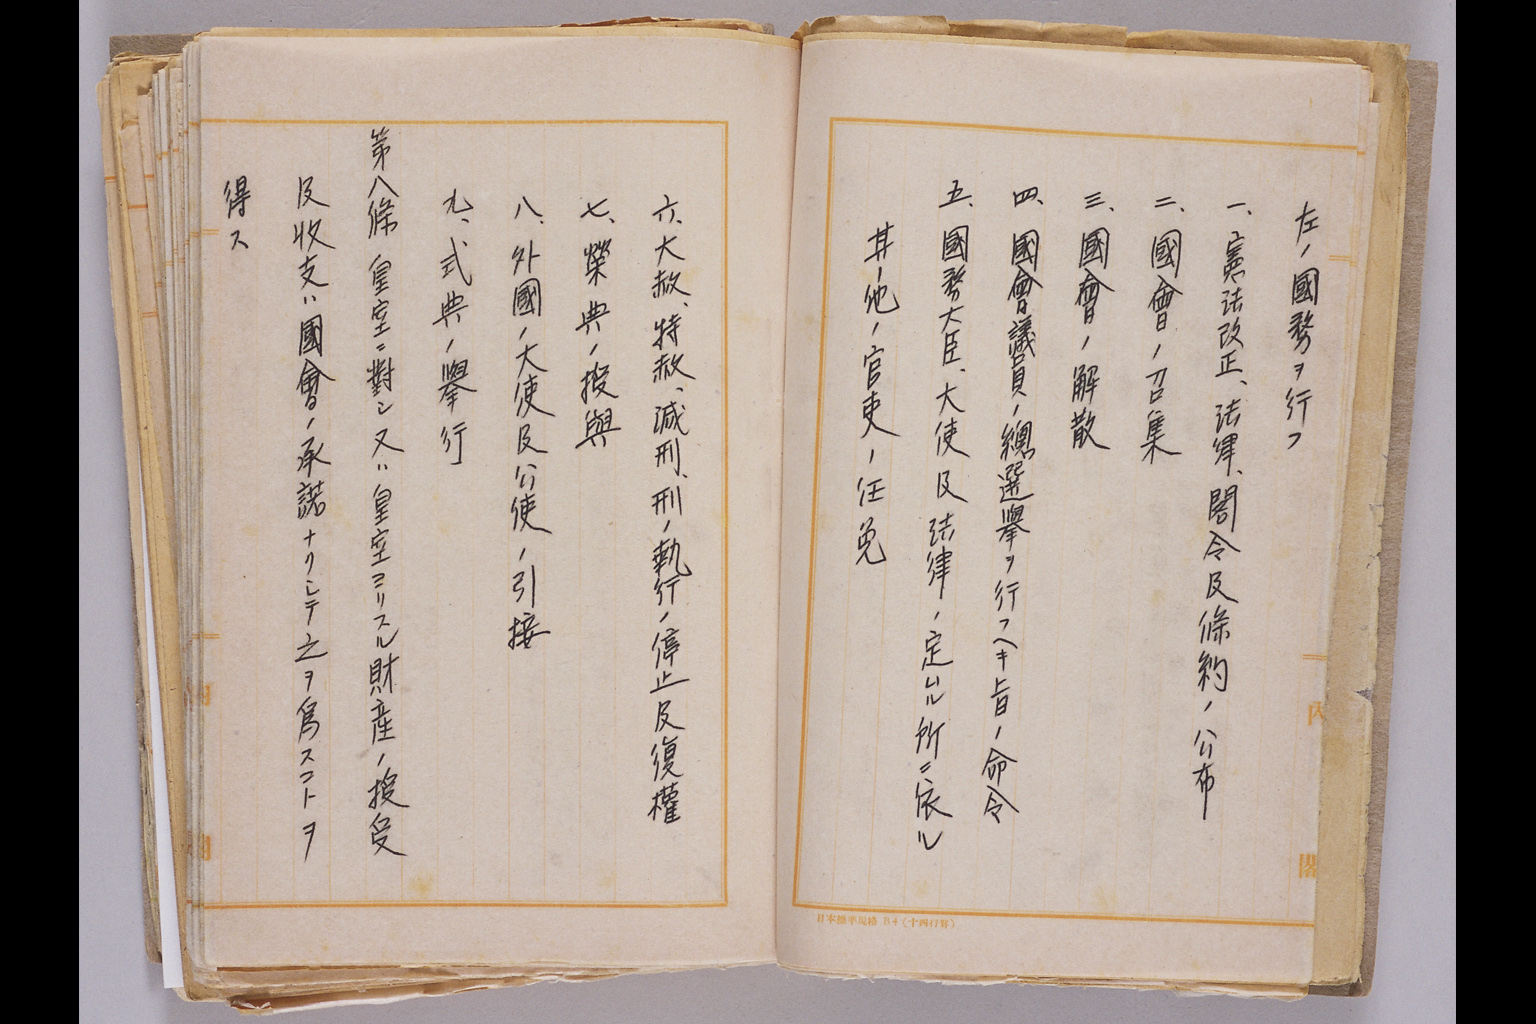 左ノ國務ヲ行フ
一、憲法改正、法律、閣令及條約ノ公布
二、國會ノ召集
三、國會ノ解散
四、國會議員ノ總選擧ヲ行フヘキ旨ノ命令
五、國務大臣、大使及法律ノ定ムル所ニ依ル
其ノ他ノ官吏ノ任免
内閣
日本標準規格 B4(十四行野)
六、大赦、特赦、減刑、刑ノ執行ノ停止及復權
七、榮典ノ授與
八、外國ノ大使及公使ノ引接
九、式典ノ擧行
第八條 皇室ニ對シ又ハ皇室ヨリスル財産ノ授受
及收支ハ國會ノ承諾ナクシテ之ヲ爲スコトヲ
得ス